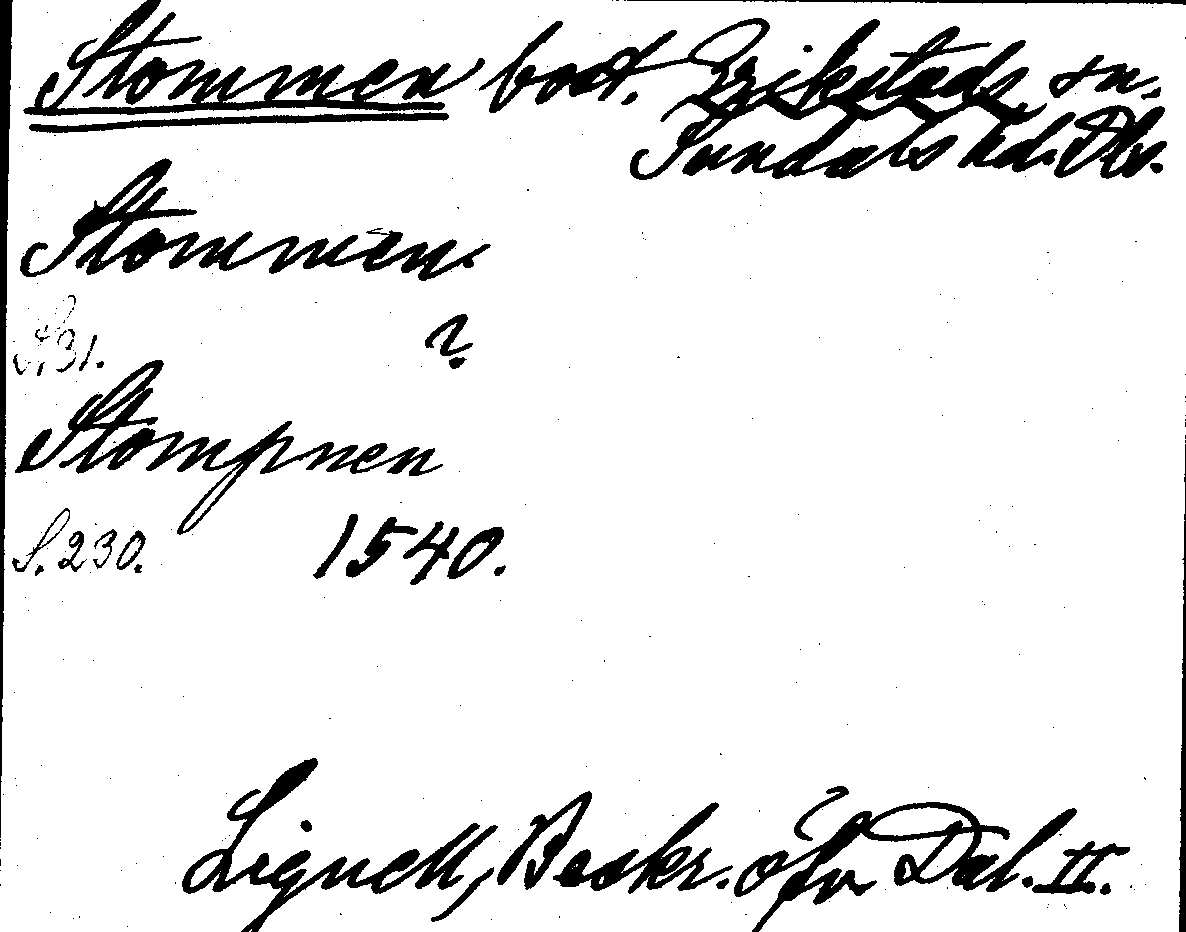 Stommen bost. Erikstads sn.
Sundals hd. Dls.
Stommen.
S. 31. ?
Stompnen
S. 230. 1540.
Lignell, Beskr. öfv. Dal. II.